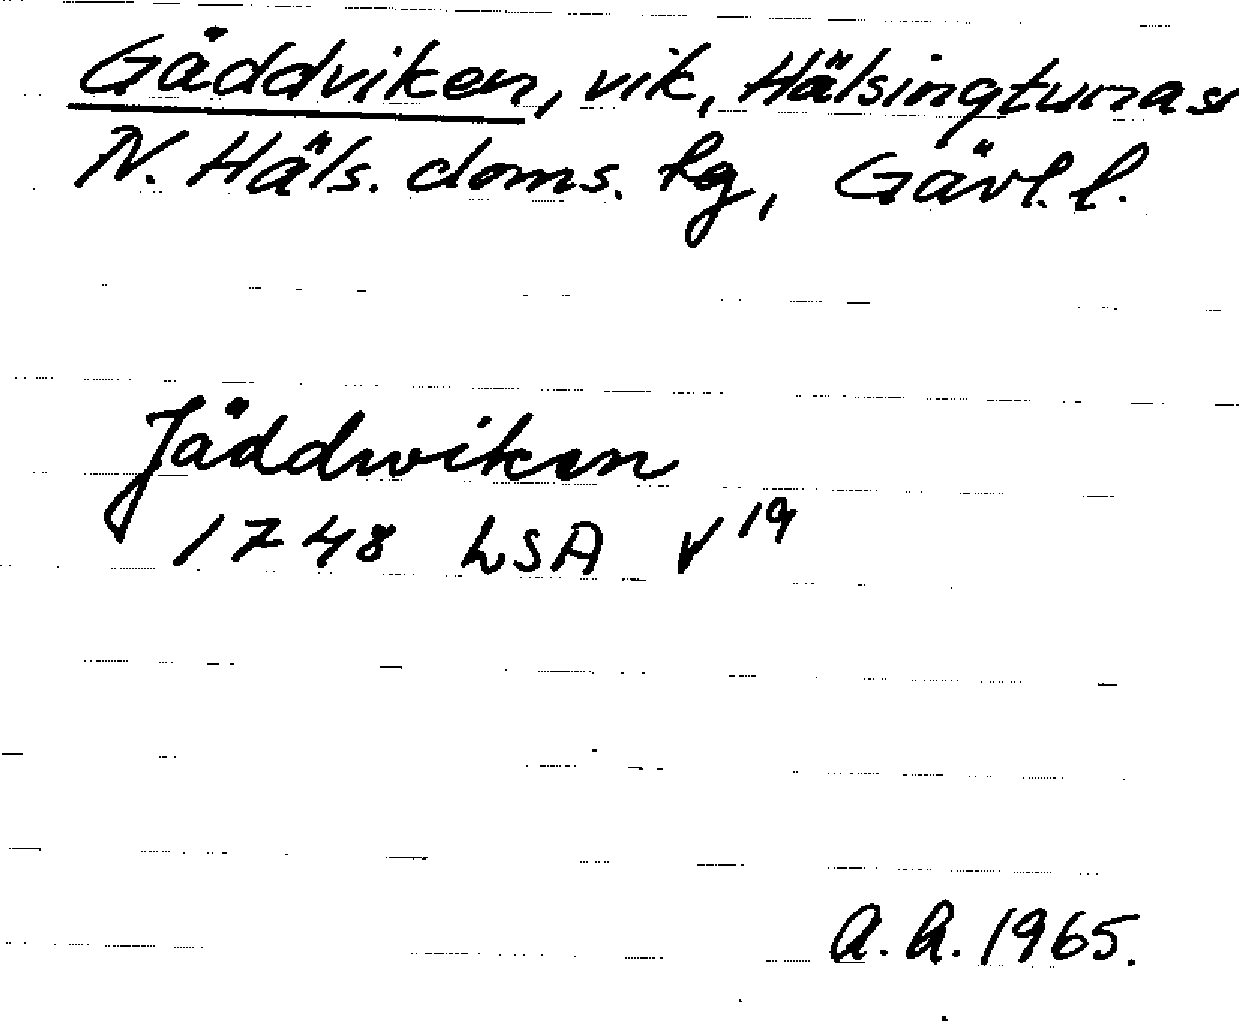 Gäddviken, vik, Hälsingtuna s
N. Häls. doms. hg, Gävl. l.
Jäddwiken
1748 LSA V 19
A. A. 1965.